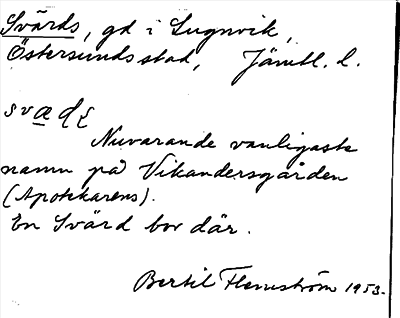 Svärds, gd i Lugnvik,
Östersunds stad, Jämtl. l.
Nuvarande vanligaste
namn på Vikandersgården
(Apotekarens).
En Svärd bor där.
Bertil Flemström 1953.